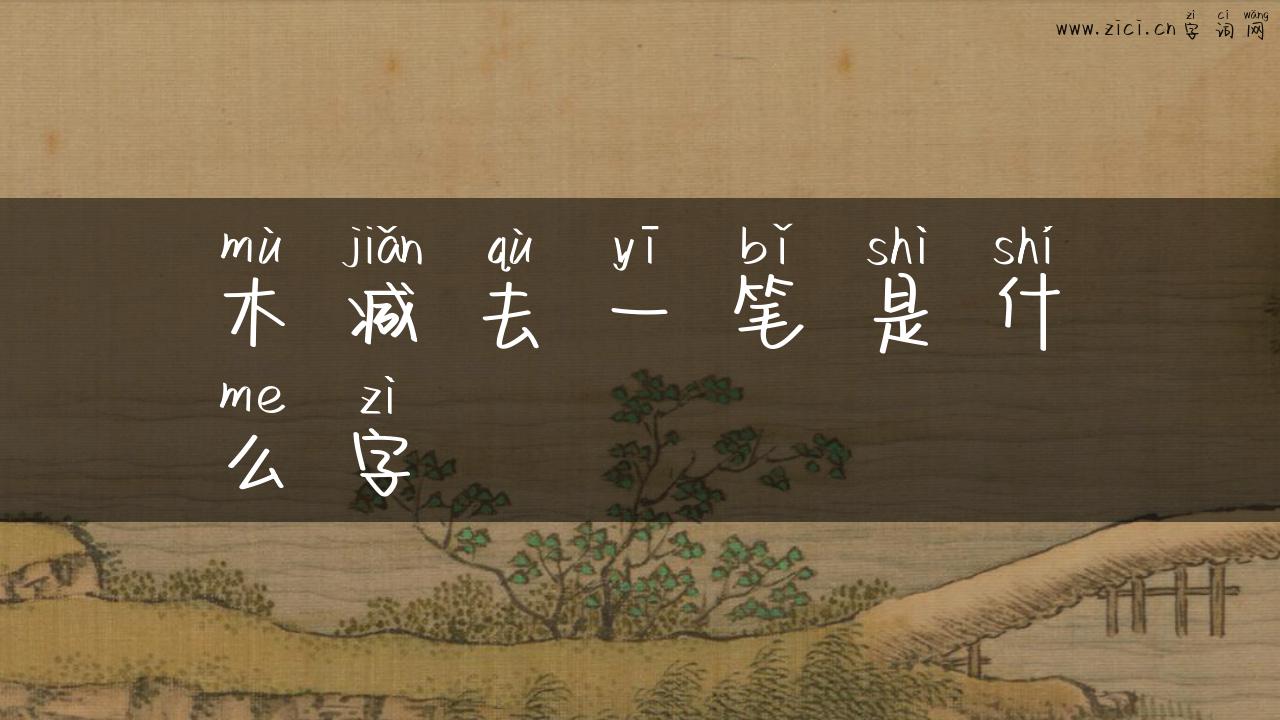 zì cí wǎng
www.zici.cn 字词网
mù jiǎn qù yī bǐ shì shí
木减去一笔是什
me zì
么字